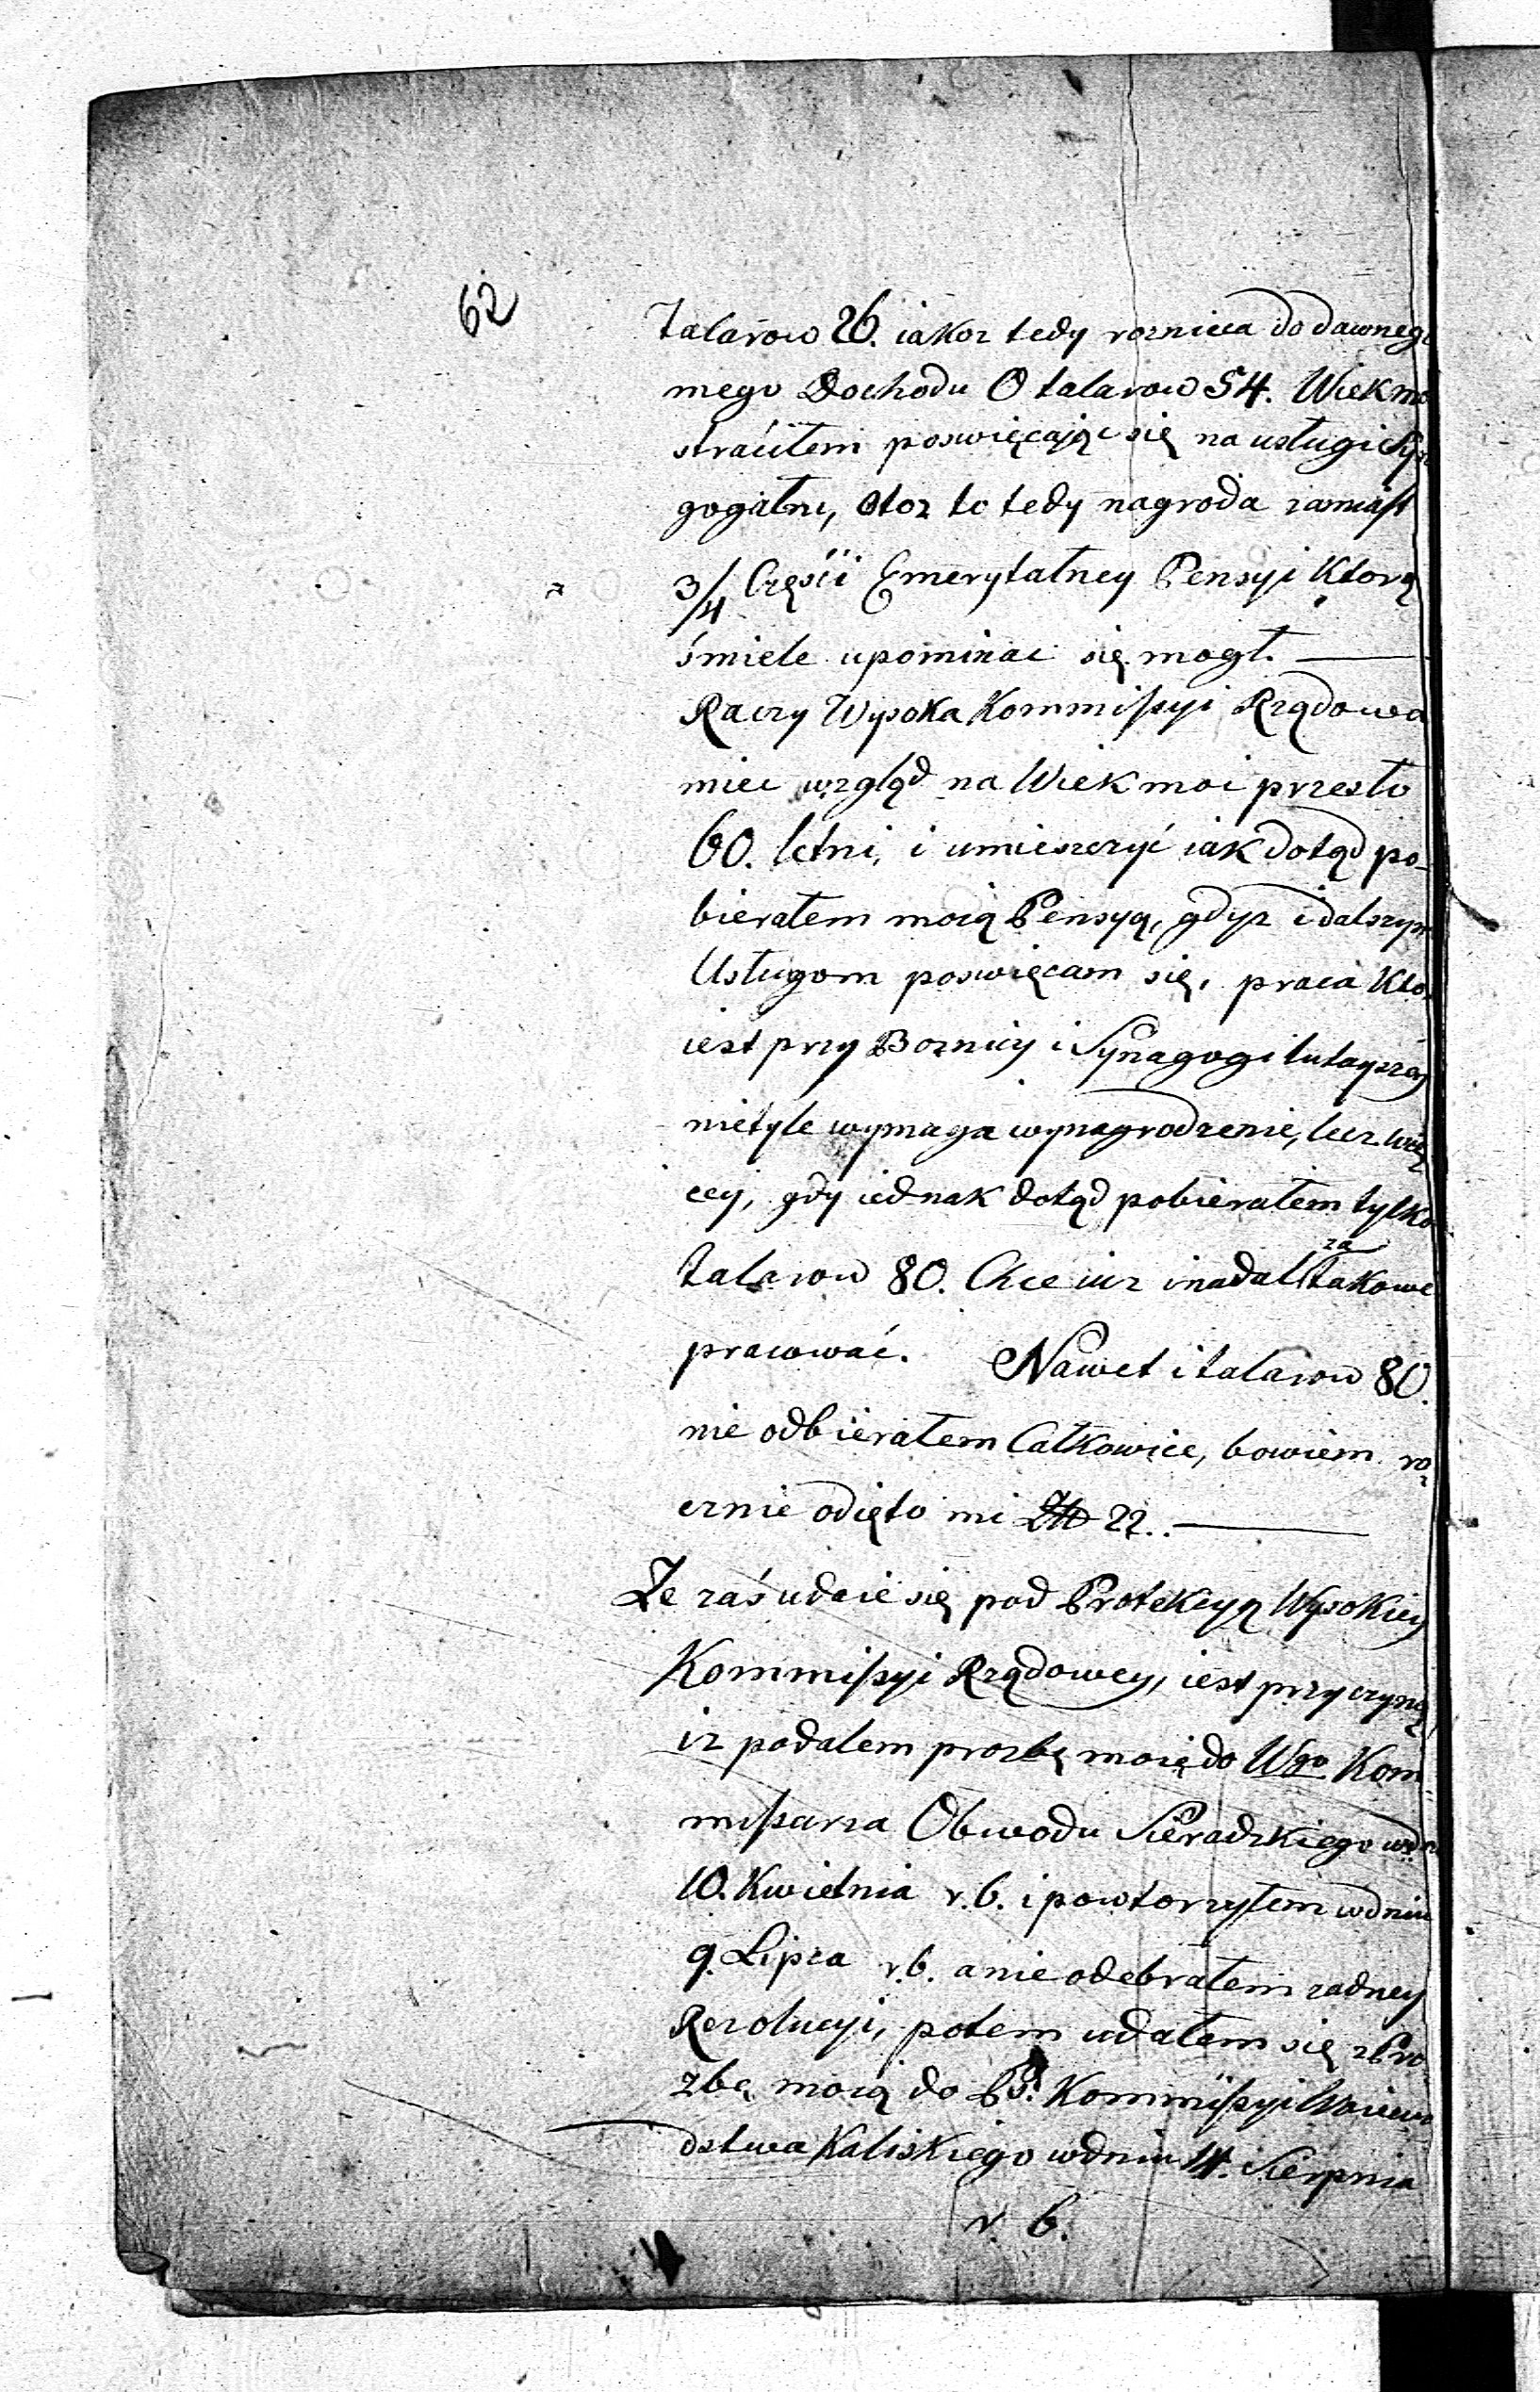 62
Talarow 26. iakoz tedy roznica do dawnego
mego Dochodu O talarow 54. Wiek mo
straciłem poswięcaiąc się na usługi Syna
gogalne, otoz to tedy nagroda zamiast
3/4 Częsci Emerytalney Pensyi Ktorą
śmiele upominac się mogł. —
Raczy Wysoka Kommissyi Rządowa
miec wzgląd na Wiek moi przeszło
60. letni, i umieszczyć iak dotąd po-
bierałem moią Pensyą, gdyz i dalszym
Usługom poswięcam się, praca Kto
iest przy Boznicy i Synagogi tutayszey
nietyle wymaga wynagrodzenie, lecz wię
cey, gdy iednak dotąd pobierałem tylko
Talarow 80. Chce iuz inadal za takowe
pracować. Nawet i talarow 80.
nie odbierałem Całkowice, bowiem ro
cznie odięto mi 22. —
Ze zaś udaie się pod Protekcyą Wysokiey
Kommissyi Rządowey, iest przyczyną
iz podalem prozbę moię do Wgo Kom
missarza Obwodu Sieradzkiego wdn
10. Kwietnia r. b. i powtorzyłem wdniu
9. Lipca r. b. a nie odebrałem zadney
Rezolucyi, potem udałem się z Pro
zbą moią do Kommissyi Woiewo
dztwa Kaliskiego wdniu 14. Sierpnia
r. b.